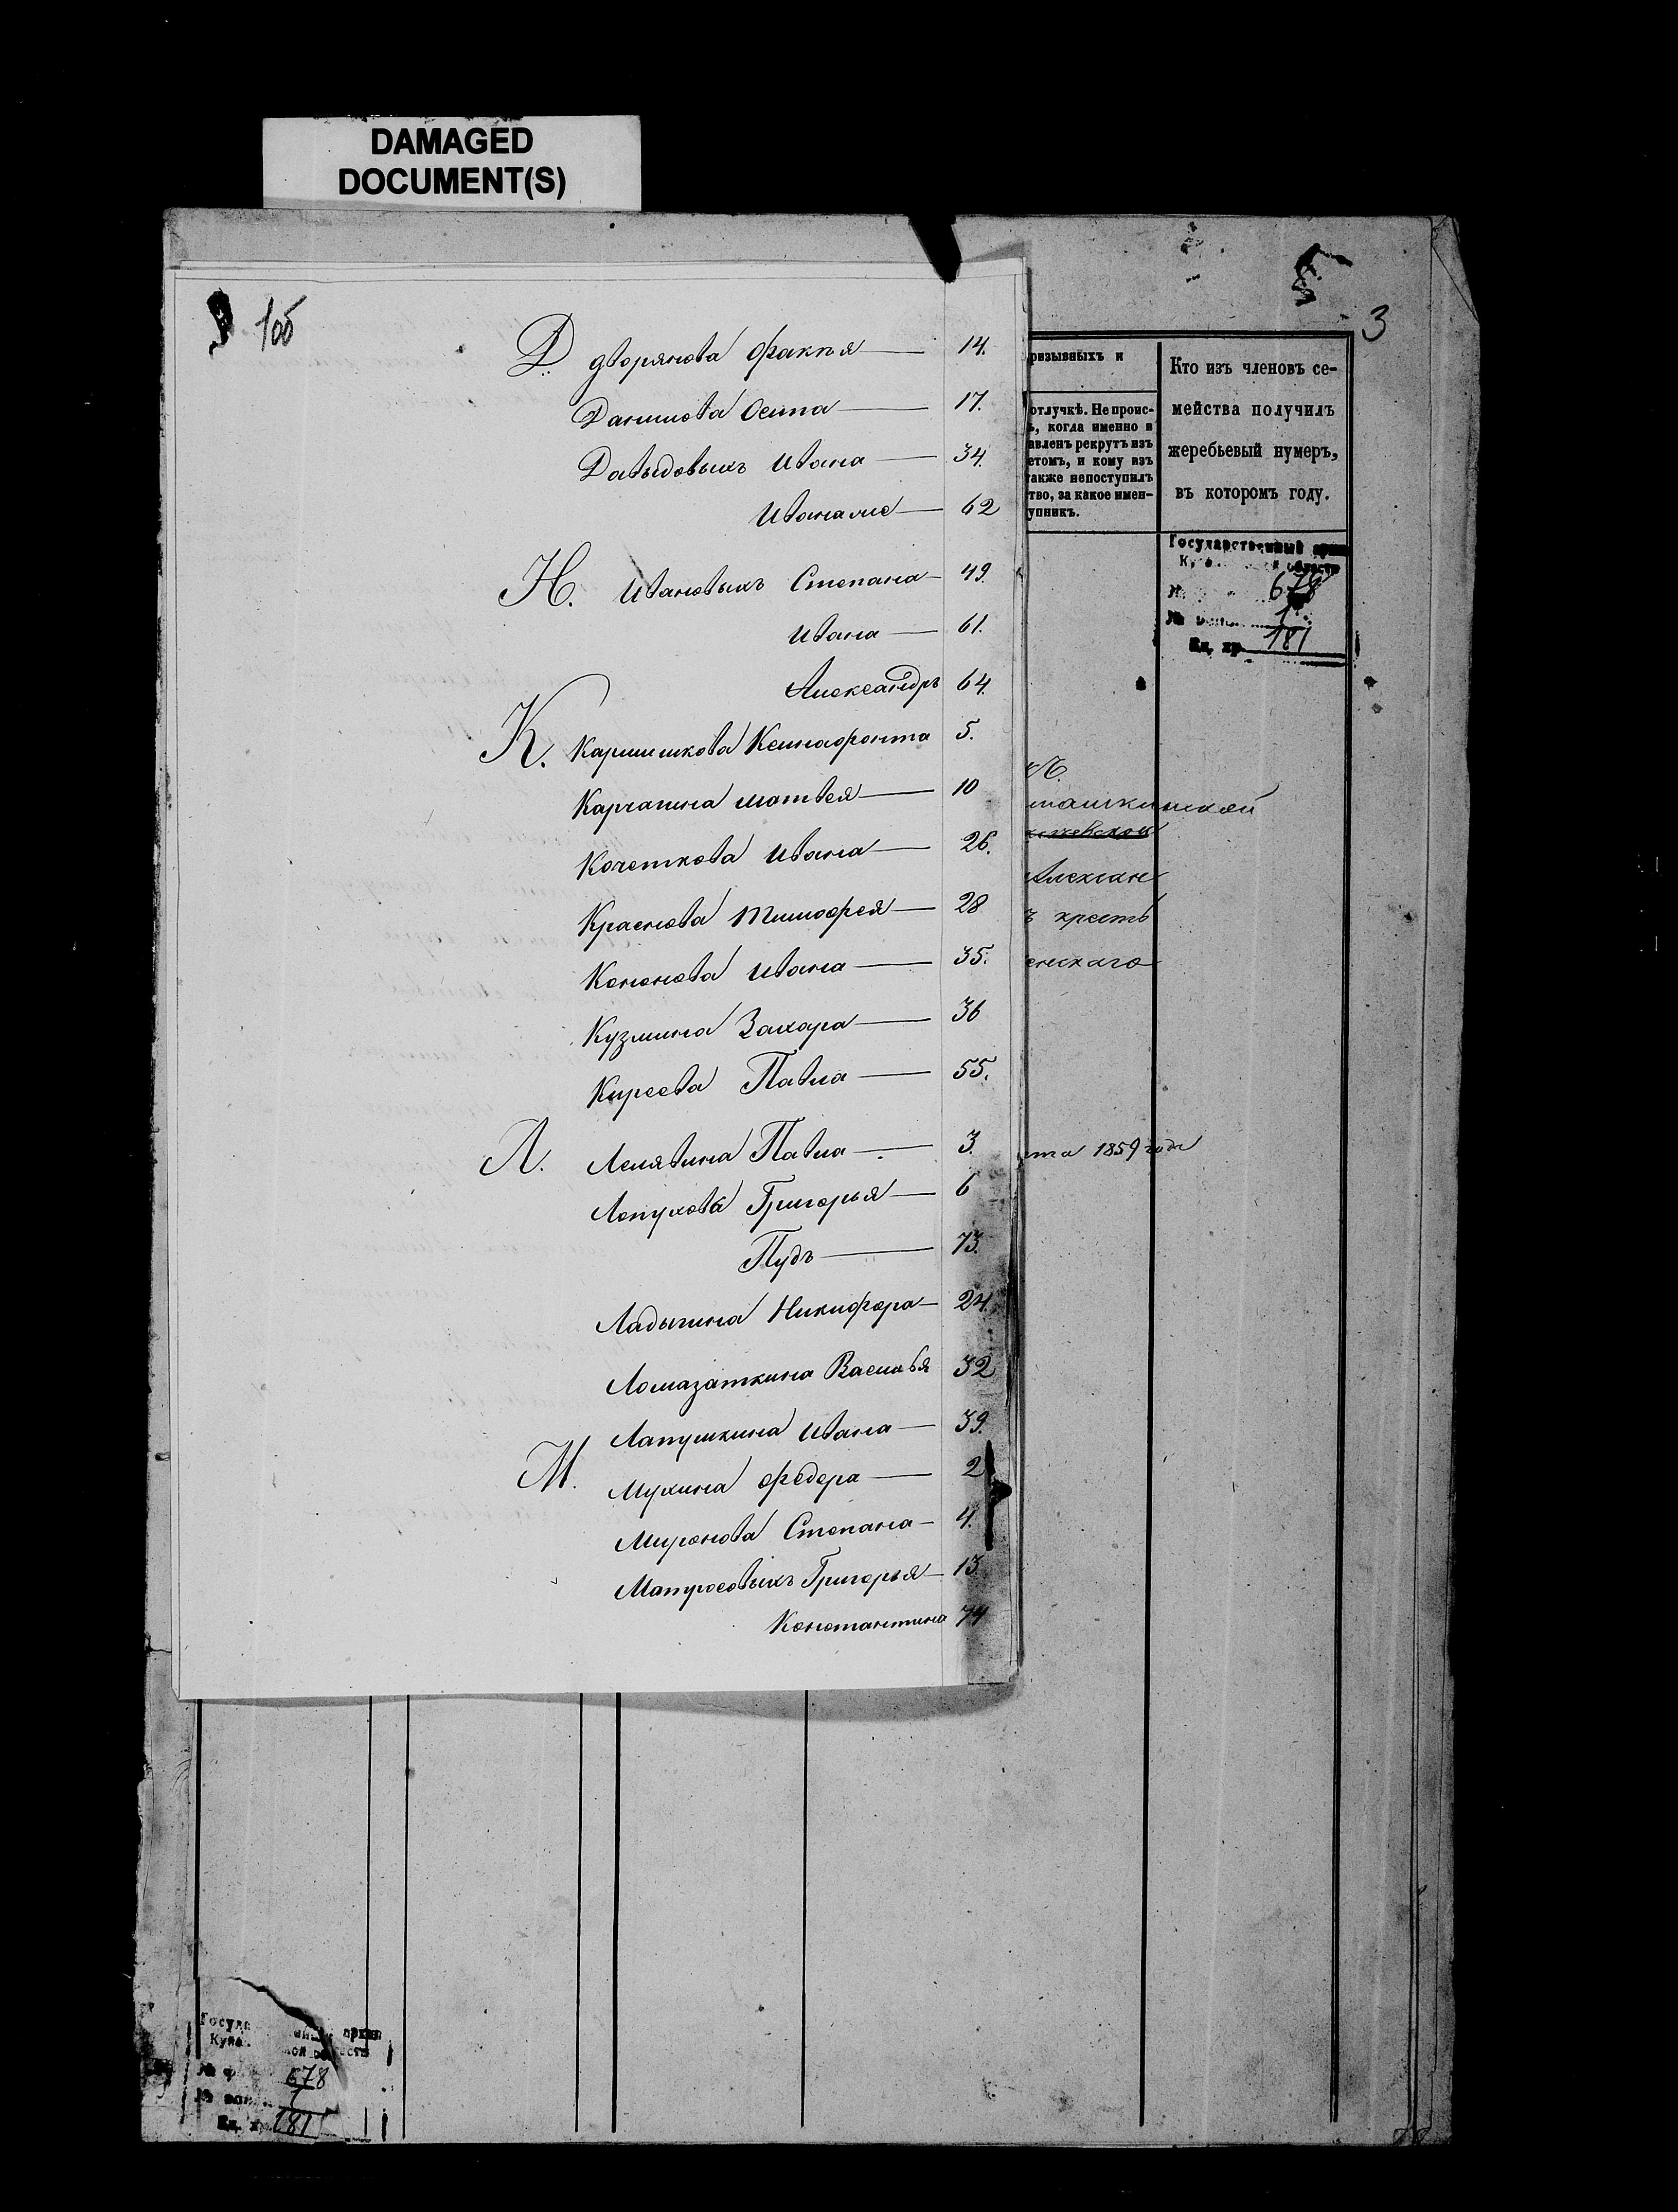 DAMAGED
DOCUMENT(S)
105
3
Д. дворянова Факѣя — 14.
Данилова Осипа — 17.
Давыдовыхъ Ивана — 34.
Ивана же — 62
И. Ивановыхъ Степана — 49.
Ивана — 61.
Александръ 64.
К. Каришкова Ксинофонта 5.
Карчагина матвея — 10
Кочеткова Ивана — 26.
Краснова Тимофея — 28
Кононова Ивана — 35.
Кузмина Захара — 36
Киреева Павла — 55.
Л. Лелявина Павла — 3.
Лопухова Григорья — 6
Пудъ — 73.
Ладыгина Никифора — 24.
Ломазаткина Василья 32
Лапушкина Ивана — 39.
М. Мухина федора — 2
Миронова Степана — 4.
Матросовыхъ Григорья — 13
Константина 74
ризывныхъ и
отлучкѣ. Не проис-
ь, когда именно и
авленъ рекрутъ изъ
етомъ, и кому изъ
также непоступилъ
тво, за какое имен-
упникъ.
Кто изъ членовъ се-
мейства получилъ
жеребьевый нумеръ,
въ которомъ году.
Государственный архив
области
678
1
Ед. хр. 181
ташкинской
Алексан
ъ крестъ
енскаго
та 1859 года
678
1
Ед. х. 181